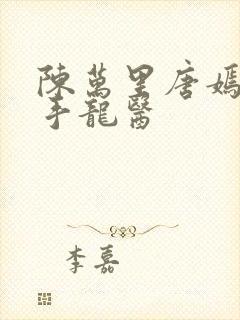 陳萬里唐嫣
手龍醫
李嘉